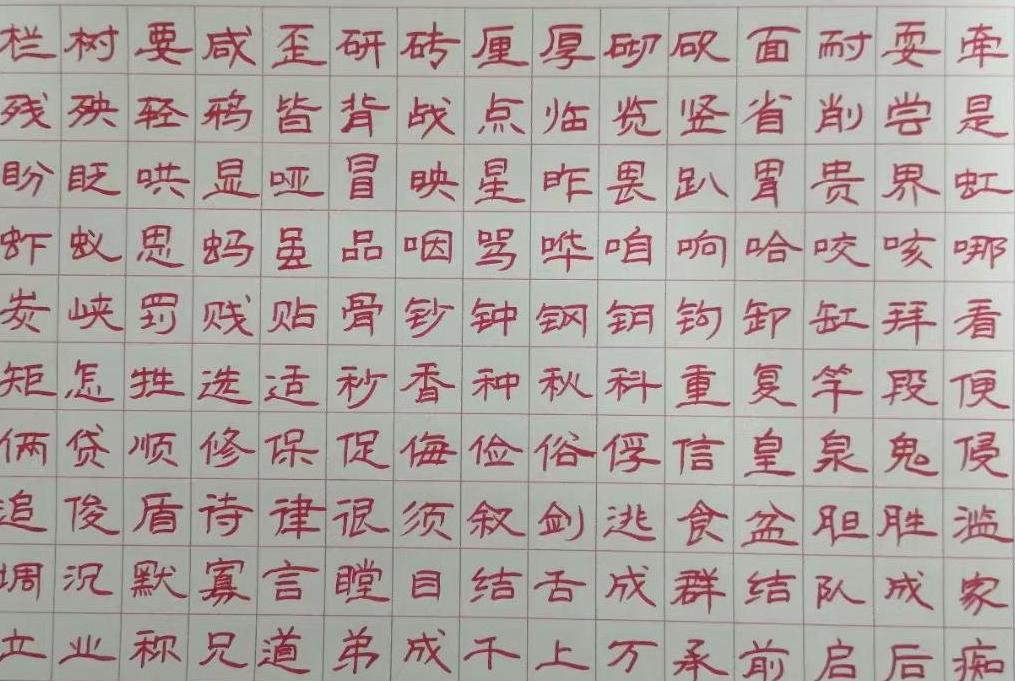 栏树要咸歪研砖厘厚砌砍面耐耍牵
残殃轻鸦皆背战点临览竖省削尝是
盼眨哄显哑冒映星昨畏趴胃贵界虹
虾蚁思蚂虽品咽骂哗咱响哈咬咳哪
炭峡罚贱贴骨钞钟钢钥钩卸缸拜看
矩怎牲选适秒香种秋科重复竿段便
俩贷顺修保促侮俭俗俘信皇泉鬼侵
追俊盾待律很须叙剑逃食盆胆胜滥
凋沉默寡言瞠目结舌成群结队成家
立业称兄道弟成千上万承前启后痴